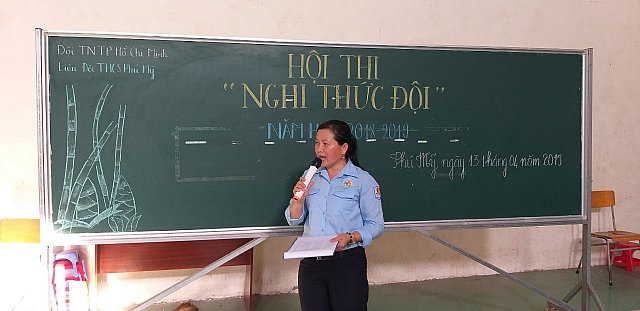 Đội TNTP Hồ Chí Minh
Liên Đội THCS Phú Mỹ
HỘI THI
"NGHI THỨC ĐỘI"
NĂM 2018-2019
Phú Mỹ, ngày 13 tháng 04 năm 2019